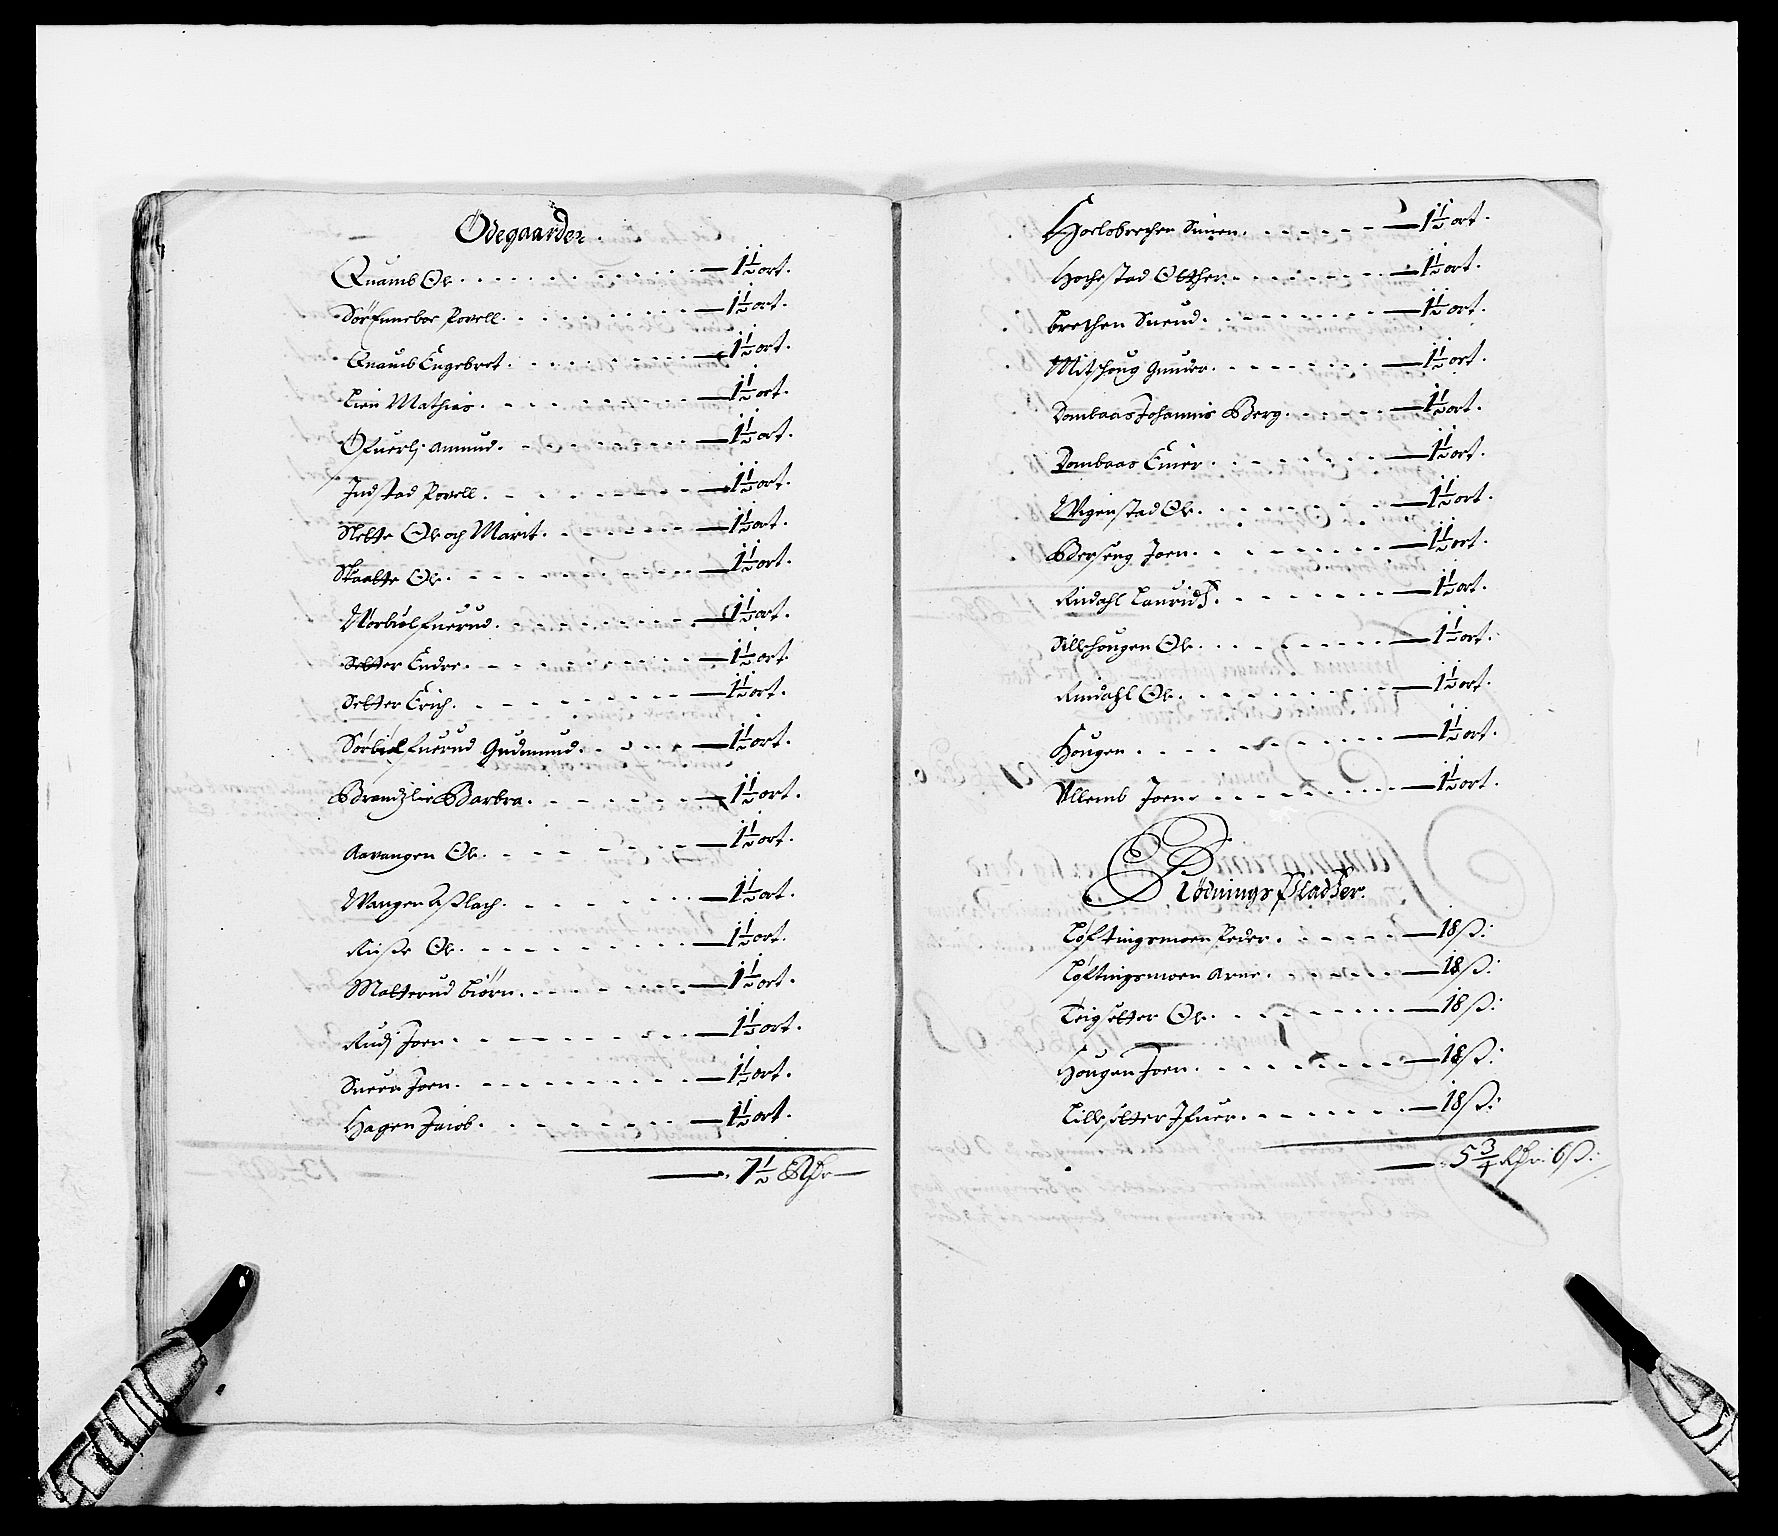 Ödegaarder.
Quamb Ole - 1½ ort.
Sörfuneboe Povell - 1½ ort.
Quamb Engebret - 1½ ort.
Lien Mathias - 1½ ort.
Ofuerlj Amund - 1½ ort.
Jndstad Povell - 1½ ort.
Slette Ole och Marit - 1½ ort.
Skaatte Ole - 1½ ort.
Norbiølfuerud - 1½ ort.
Setter Endre - 1½ ort.
Setter Erich - 1½ ort.
Sörbiølfuerud Gudmund - 1½ ort.
Brendzlie Barbra - 1½ ort.
Aavangen Ole - 1½ ort.
Wangen Aslach - 1½ ort.
Riise Ole - 1½ ort.
Motterud Biörn - 1½ ort.
Rudj Joen - 1½ ort.
Sueen Joen - 1½ ort.
Hagen Jacob - 1½ ort.
7½ Rdr
Horlobrechen Simen - 1½ ort.
Hochestad Olther - 1½ ort.
Brechen Suend - 1½ ort.
Mitshoug Gunder - 1½ ort.
Dombaas Johannis Berg - 1½ ort.
Dombaas Einer - 1½ ort.
Wigenstad Ole - 1½ ort.
Berseng Joen - 1½ ort.
Rindahl Lauridz - 1½ ort.
Sillihougen Ole - 1½ ort.
Rindahl Ole - 1½ ort.
Hougen - 1½ ort.
Ullemb Joen - 1½ ort.
Rödnings Pladtzer.
Löftingsmoen Peder - 18 ß:
Löftingsmoen Arne - 18 ß:
Teigsetter Ole - 18 ß:
Hougen Joen - 18 ß:
Lillesetter Jfuer - 18 ß:
5¾ Rdr: 6 ß: